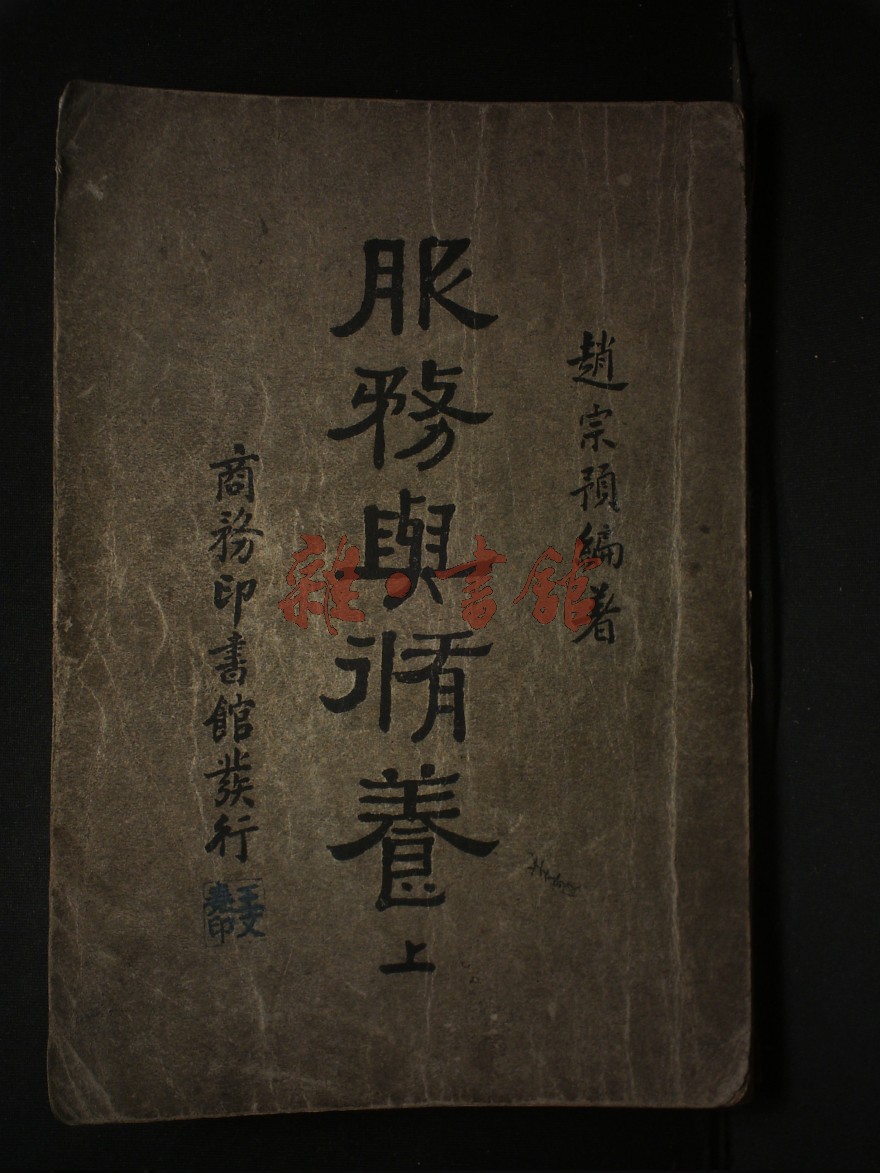 趙宗預編著
服務與脩養
上
商務印書館發行
雜·書館